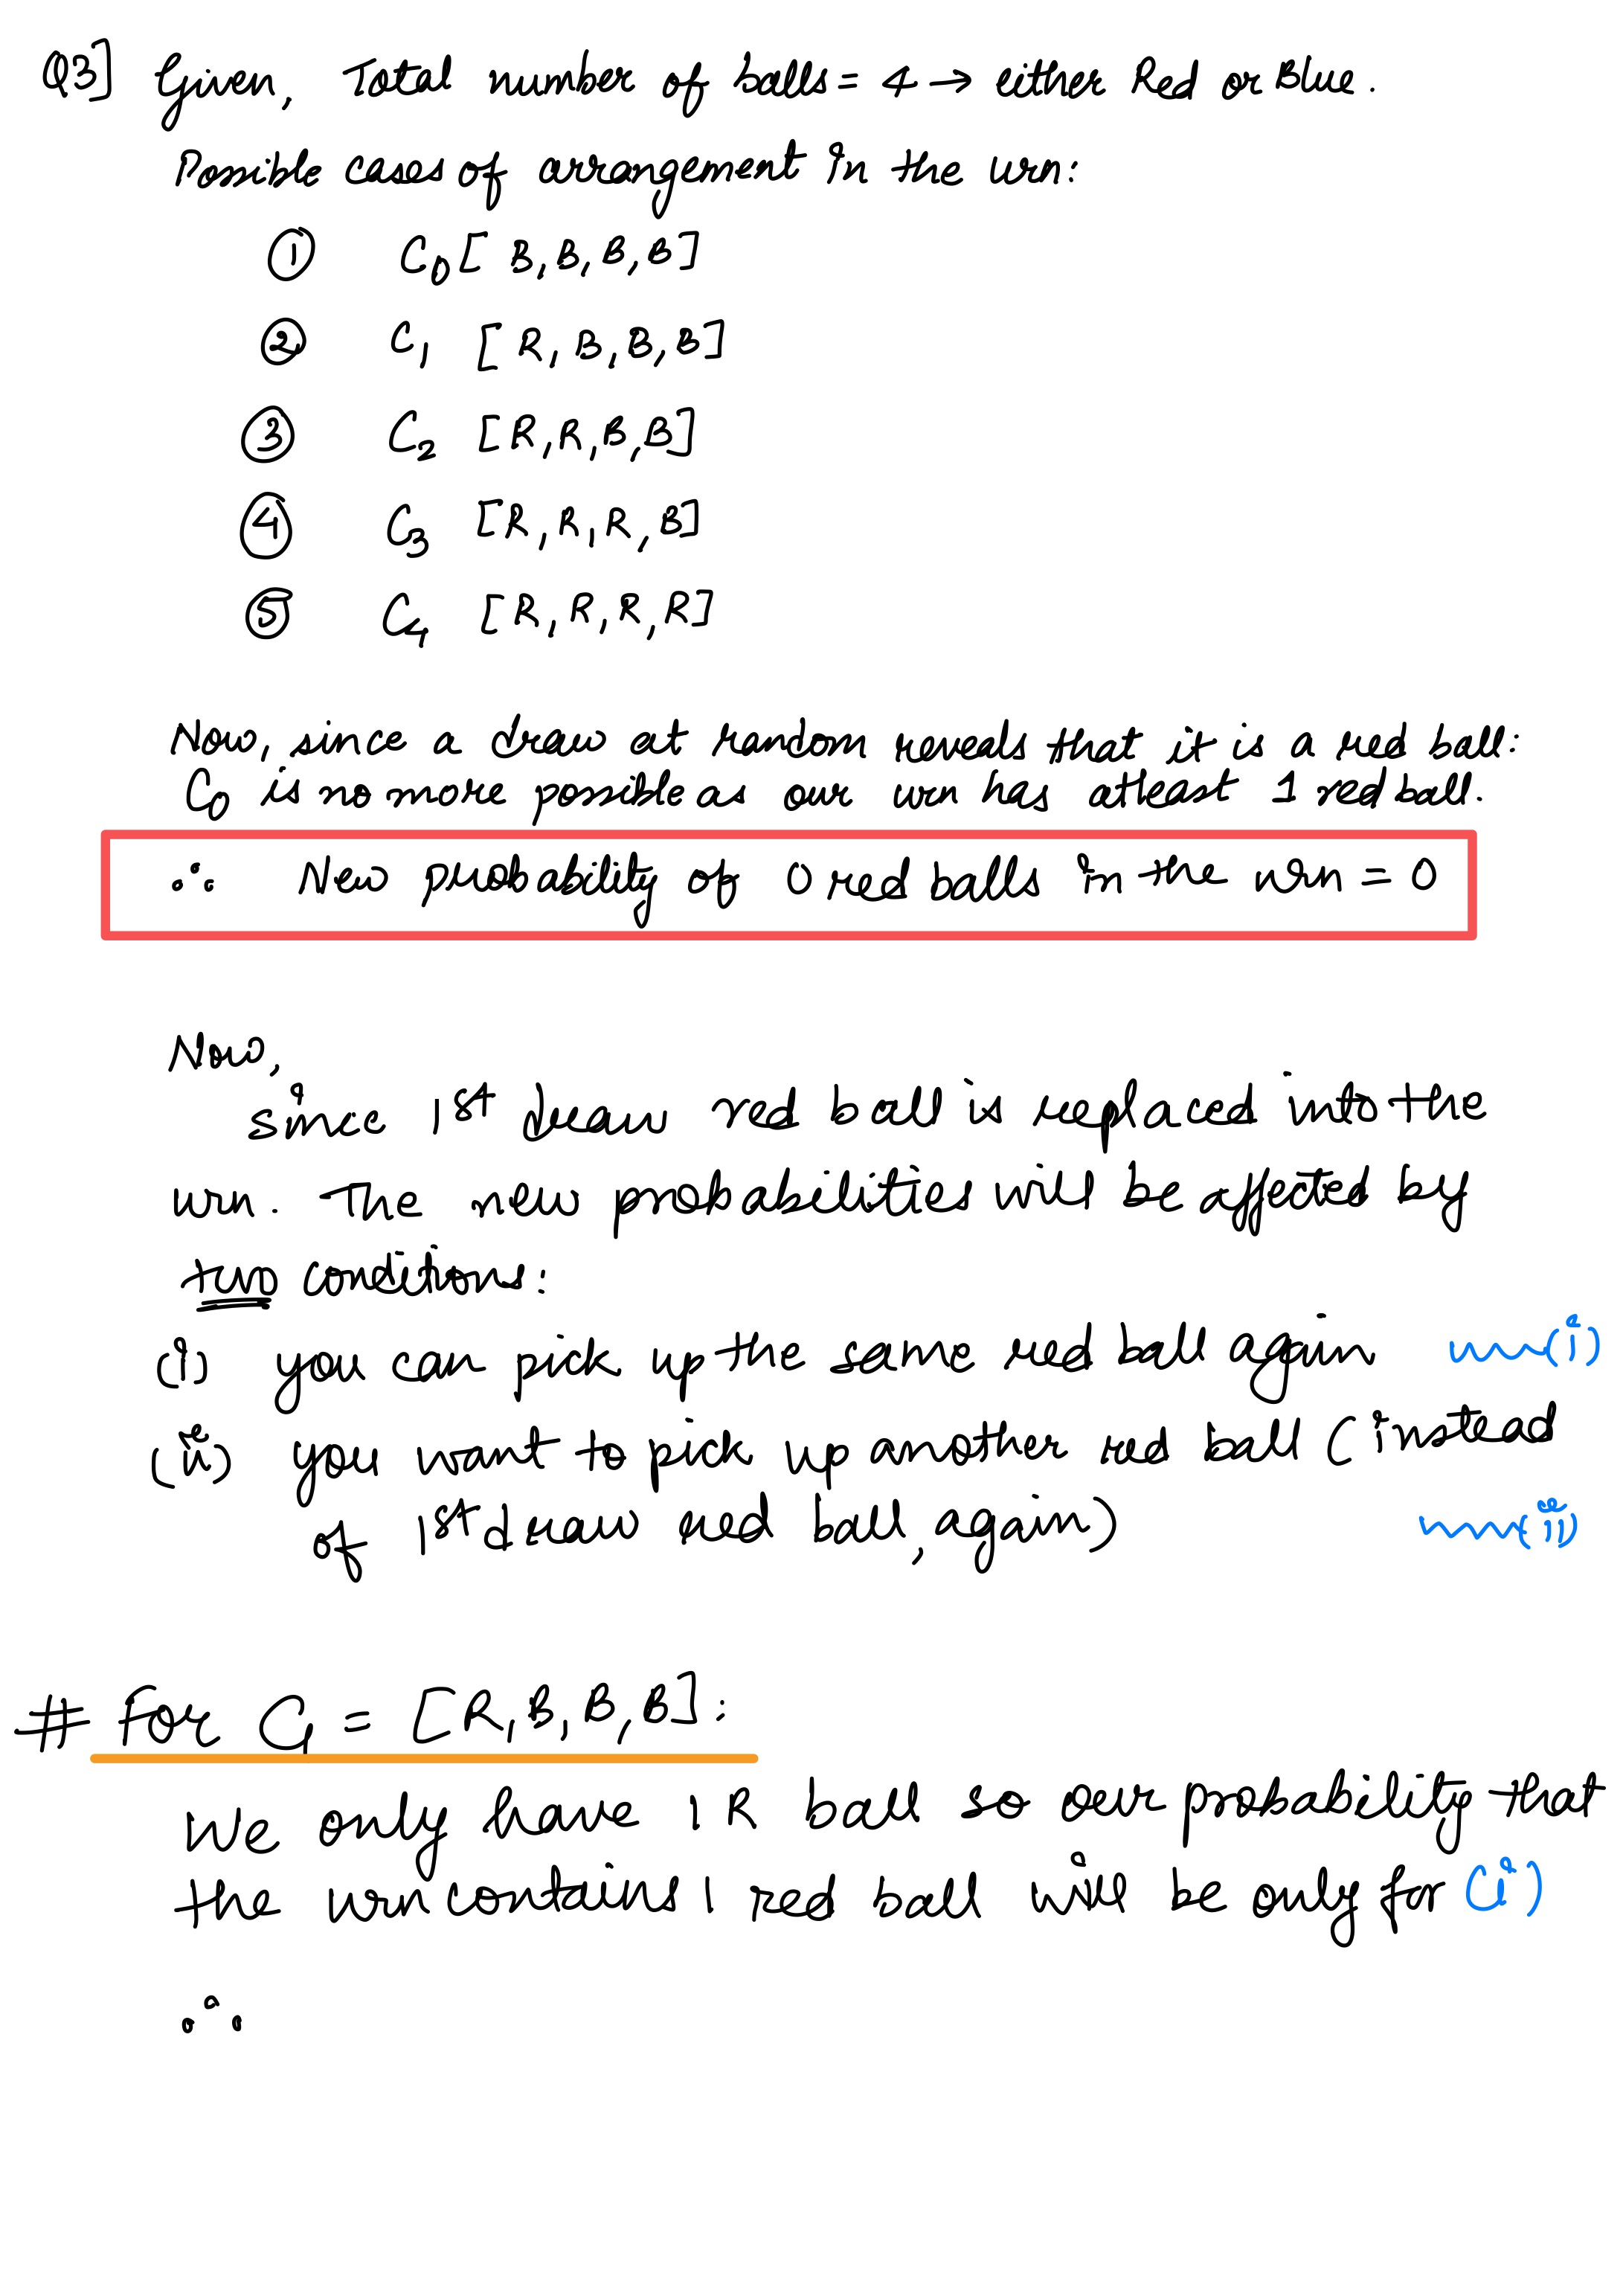 Q3] Given, Total number of balls = 4 → either Red or Blue.
Possible cases of arrangement in the urn:
① C₀ [ B, B, B, B ]
② C₁ [ R, B, B, B ]
③ C₂ [ R, R, B, B ]
④ C₃ [ R, R, R, B ]
⑤ C₄ [ R, R, R, R ]
Now, since a draw at random reveals that it is a red ball:
C₀ is no more possible as our urn has atleast 1 red ball.
∴ New probability of 0 red balls in the urn = 0
Now,
since 1st draw red ball is replaced into the
urn. The new probabilities will be affected by
two conditions:
(i) you can pick up the same red ball again (i)
(ii) you want to pick up another red ball (instead
of 1st draw red ball, again) (ii)
# For C₁ = [R, B, B, B]:
We only have 1 R ball so our probability that
the urn contains 1 red ball will be only for (i)
∴